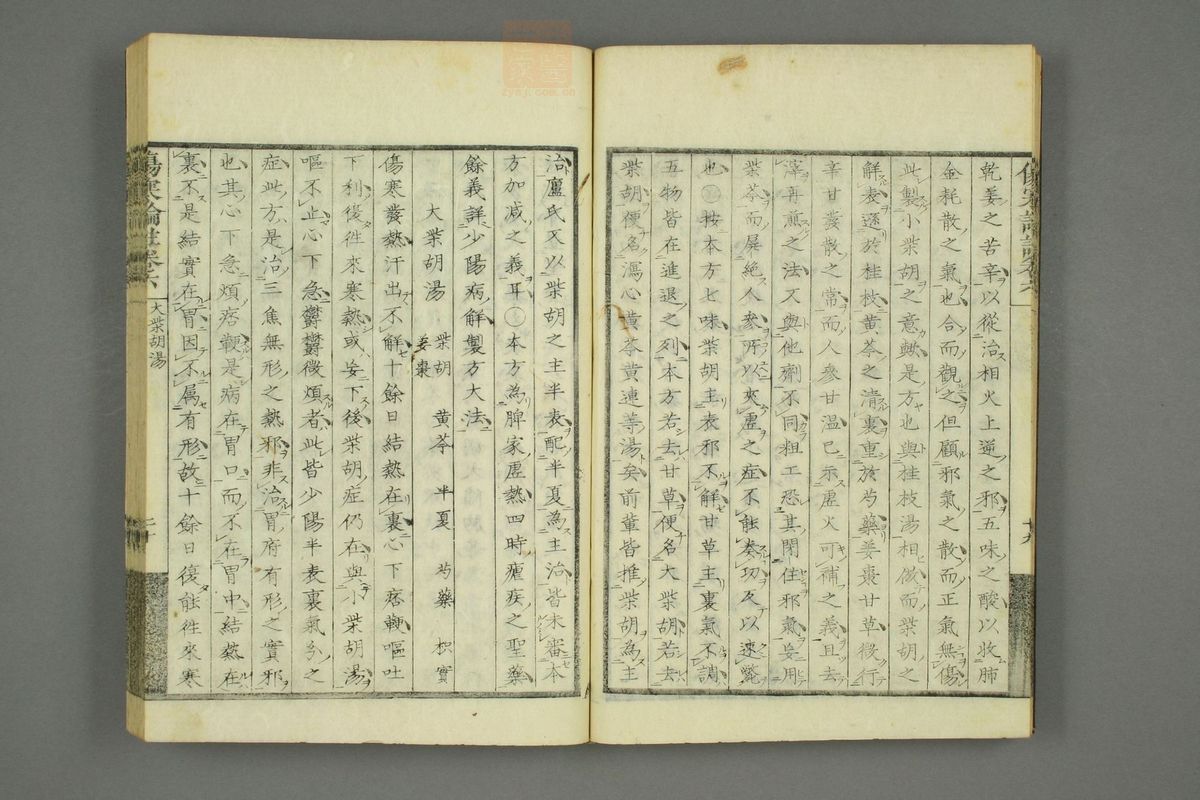 乾姜之苦辛以從治相火上逆之邪五味之酸以收肺
金耗散之氣也合而觀之但顧邪氣之散而正氣無傷
此製小柴胡之意歟是方也與桂枝湯相倣而柴胡之
解表遜於桂枝黄芩之清裏重於芍藥姜棗甘草微行
辛甘發散之常而人參甘温已示虚火可補之義且去
滓再煎之法又與他劑不同粗工恐其閉住邪氣妄用
柴芩而屏絶人參所以夾虚之症不能奏功反以速斃
也 按本方七味柴胡主表邪不解甘草主裏氣不調
五物皆在進退之列本方若去甘草便名大柴胡若去
柴胡便名瀉心黄芩黄連等湯矣前輩皆推柴胡為主
治盧氏又以柴胡之主半表配半夏為主治皆未審本
方加减之義耳○本方為脾家虚熱四時瘧疾之聖藥
餘義詳少陽病解製方大法
大柴胡湯 柴胡 黄芩 半夏 芍藥 枳實
姜棗
傷寒發熱汗出不解十餘日結熱在裏心下痞鞕嘔吐
下利復徃來寒熱或妄下後柴胡症仍在與小柴胡湯
嘔不止心下急鬱鬱微煩者此皆少陽半表裏氣分之
症此方是治三焦無形之熱邪非治胃府有形之實邪
也其心下急煩痞觀是病在胃口而不在胃中結熱在
裏不是結實在胃因不属有形故十餘日復能徃來寒
傷寒論註卷六
大柴胡湯